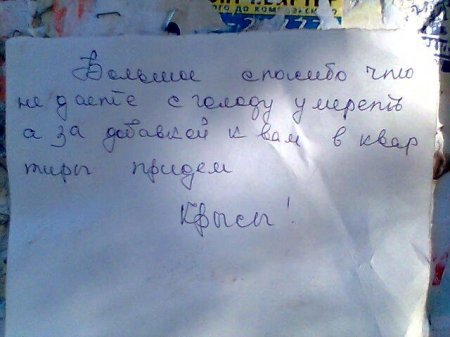 Большое спасибо что
не даете с голоду умереть
а за добавкой к вам в квар
тиры придем
Крысы!